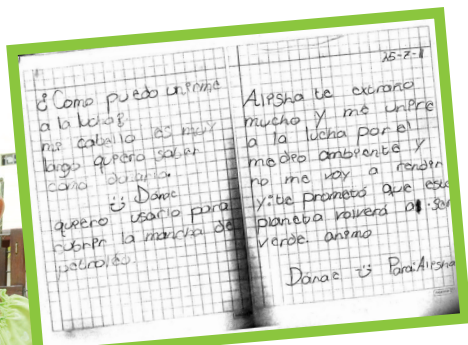 ¿Como puedo unirme
a la lucha?
me cabello es muy
largo quiero saber
como donarlo.
Danae
queero usarlo para
cubrir la mancha de
petroleo
25-7-11
Alesha te extraño
mucho y me unire
a la lucha por el
medeo ambeente y
no me voy a render
y te prometo que este
planeta volverá a ser
verde. animo
Danae Para: Alesha